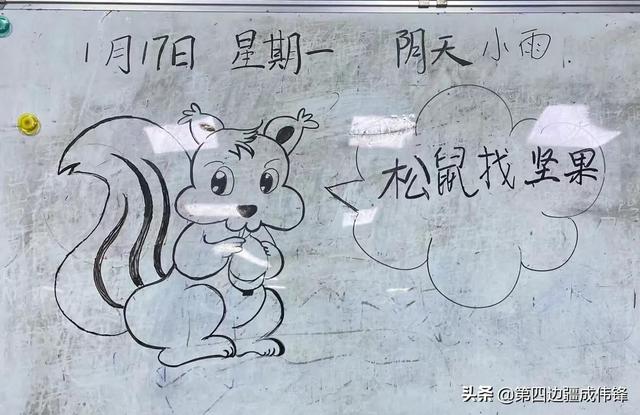 1月17日 星期一 阴天 小雨.
松鼠找坚果
头条 @第四边疆成伟锋